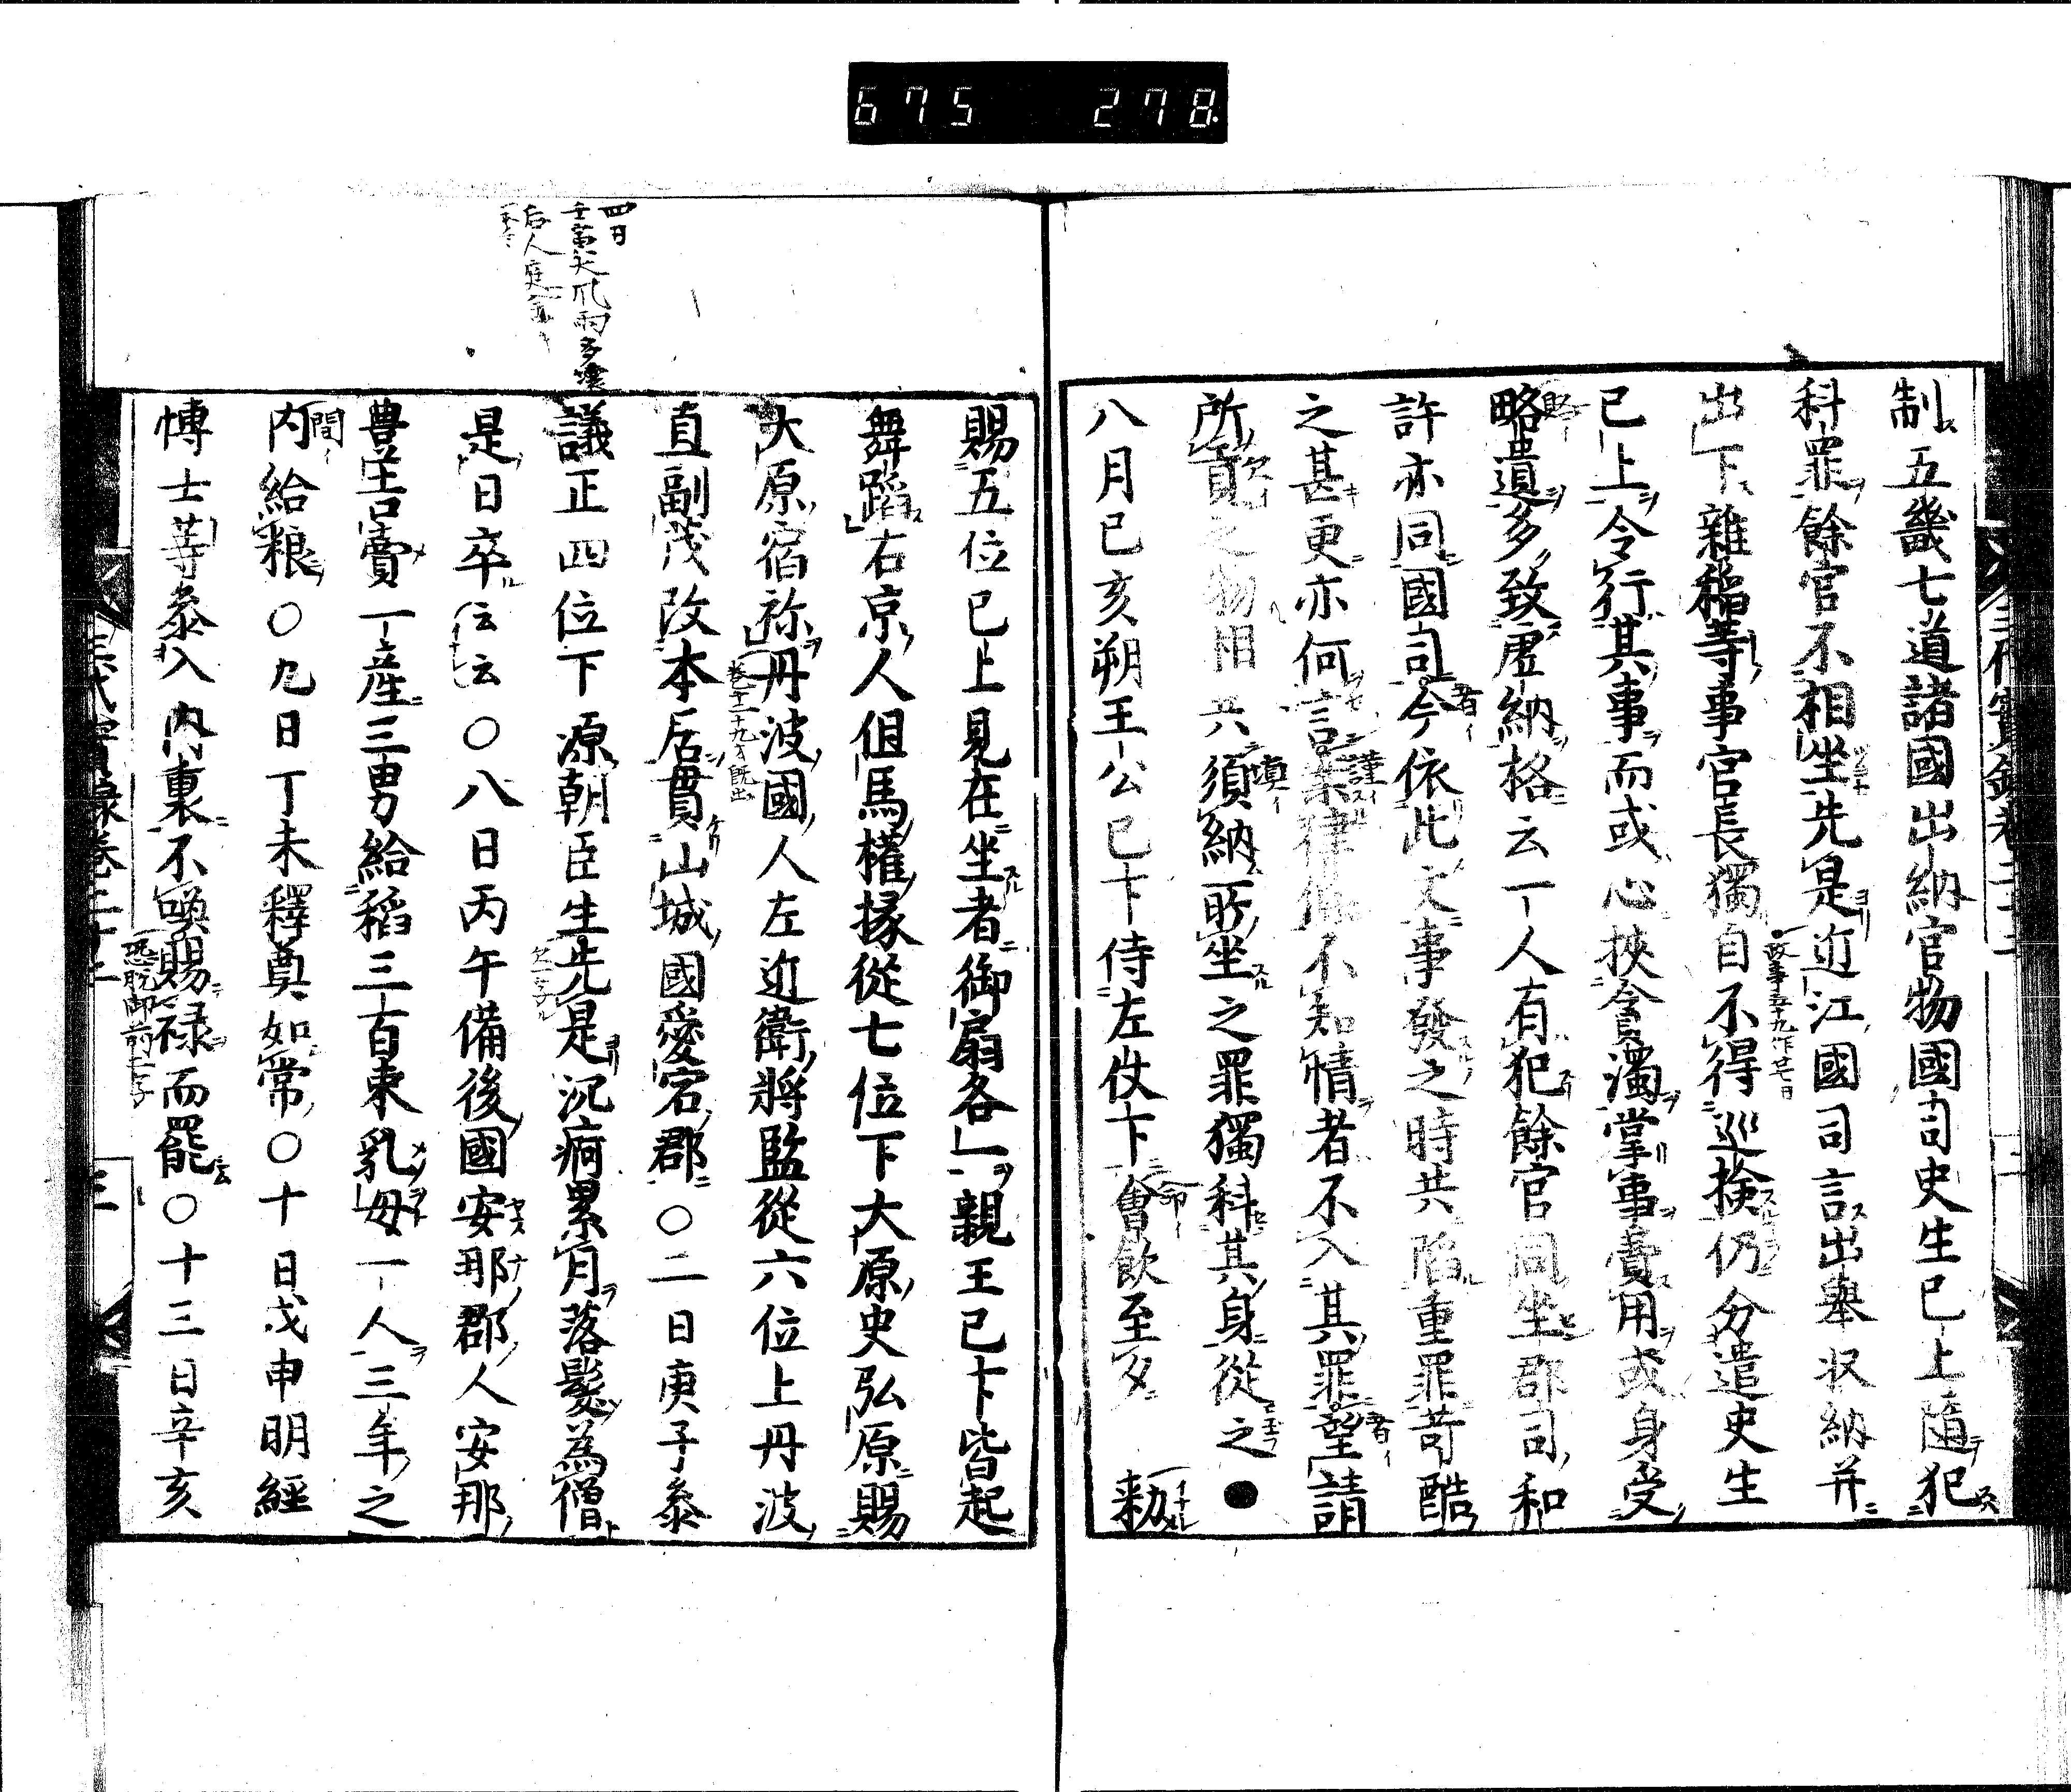 675 278
制五畿七道諸國出納官物國司史生已上隨犯
科罪餘官不相坐先是近江國司言出舉收納并
出下雜稻等事官長獨自不得巡檢仍分遣史生
已上令行其事而或心挾貪濁掌事費用或身受
略遺多致虛納格云一人有犯餘官同坐郡司和
許亦同國司今依此文事發之時共陷重罪苛酷
之甚更亦何言案律條不知情者不入其罪望請
所貢之物相共須納所坐之罪獨科其身從之●
八月己亥朔王公已下侍左仗下會飲至夕 勅
賜五位已上見在坐者御扇各一親王已下皆起
舞蹈右京人但馬權掾從七位下大原史弘原賜
大原宿祢丹波國人左近衛將監從六位上丹波
直副茂改本居貫山城國愛宕郡○二日庚子參
議正四位下源朝臣生先是沉痾累月落髮為僧
是日卒云云○八日丙午備後國安那郡人安那
豊吉賣一產三男給稻三百束乳母一人三年之
内給粮○九日丁未釋奠如常○十日戊申明經
博士等參入内裏不喚賜祿而罷○十三日辛亥
四日
壬寅大風雨多壞
三代實錄卷二十二
三